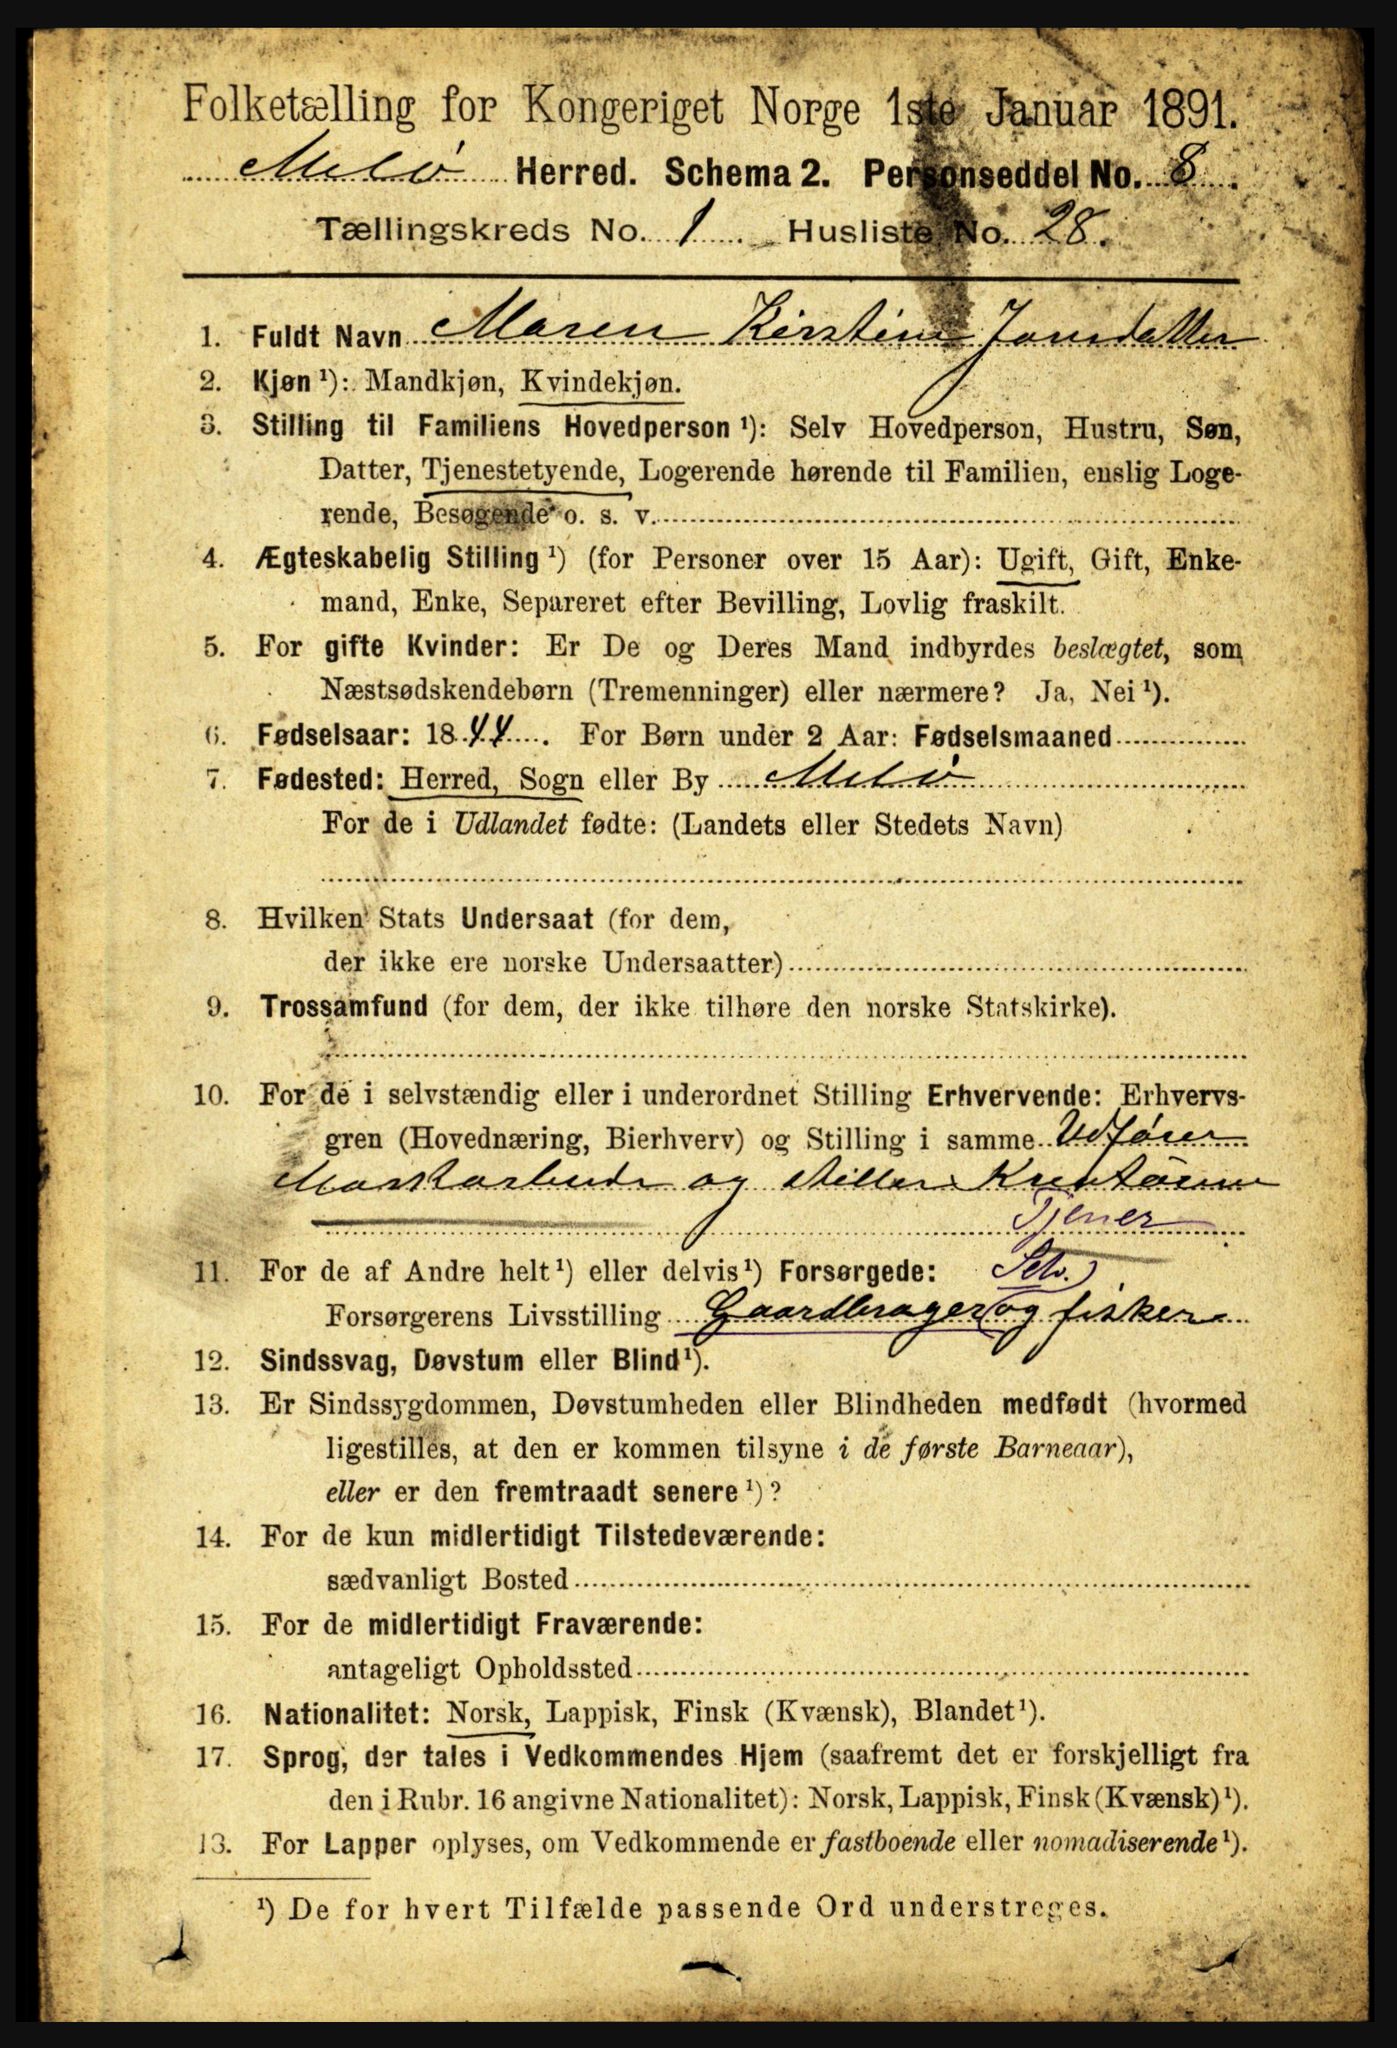 Folketælling for Kongeriget Norge 1ste Januar 1891.
Melø Herred. Schema 2. Personseddel No. 8.
Tællingskreds No. 1. Husliste No. 28.
1. Fuldt Navn Maren Kirstine Jonsdatter
2. Kjøn ¹): Mandkjøn, Kvindekjøn.
3. Stilling til Familiens Hovedperson ¹): Selv Hovedperson, Hustru, Søn,
Datter, Tjenestetyende, Logerende hørende til Familien, enslig Loge-
rende, Besøgende o. s. v.
4. Ægteskabelig Stilling ¹) (for Personer over 15 Aar): Ugift, Gift, Enke-
mand, Enke, Separeret efter Bevilling, Lovlig fraskilt.
5. For gifte Kvinder: Er De og Deres Mand indbyrdes beslægtet, som
Næstsødskendebørn (Tremenninger) eller nærmere? Ja, Nei ¹).
6. Fødselsaar: 1844. For Børn under 2 Aar: Fødselsmaaned
7. Fødested: Herred, Sogn eller By Melø
For de i Udlandet fødte: (Landets eller Stedets Navn)
8. Hvilken Stats Undersaat (for dem,
der ikke ere norske Undersaatter)
9. Trossamfund (for dem, der ikke tilhøre den norske Statskirke).
10. For de i selvstændig eller i underordnet Stilling Erhvervende: Erhvervs-
gren (Hovednæring, Bierhverv) og Stilling i samme Udfører
Markarbeide og steller Kreatürene
Tjener
11. For de af Andre helt ¹) eller delvis ¹) Forsørgede: Selv.
Forsørgerens Livsstilling Gaardbruger og fisker
12. Sindssvag, Døvstum eller Blind ¹).
13. Er Sindssygdommen, Døvstumheden eller Blindheden medfødt (hvormed
ligestilles, at den er kommen tilsyne i de første Barneaar),
eller er den fremtraadt senere ¹)?
14. For de kun midlertidigt Tilstedeværende:
sædvanligt Bosted
15. For de midlertidigt Fraværende:
antageligt Opholdssted
16. Nationalitet: Norsk, Lappisk, Finsk (Kvænsk), Blandet ¹).
17. Sprog, der tales i Vedkommendes Hjem (saafremt det er forskjelligt fra
den i Rubr. 16 angivne Nationalitet): Norsk, Lappisk, Finsk (Kvænsk) ¹).
13. For Lapper oplyses, om Vedkommende er fastboende eller nomadiserende ¹).
¹) De for hvert Tilfælde passende Ord understreges.